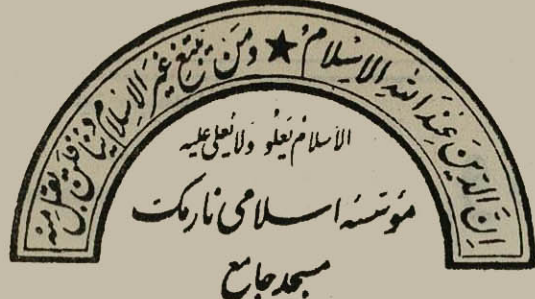 ان الدین عند الله الاسلام ★ ومن یبتغ غیر الاسلام دینا فلن یقبل منه
الاسلام یعلو ولا یعلی علیه
مؤسسه اسلامی نارمک
مسجد جامع